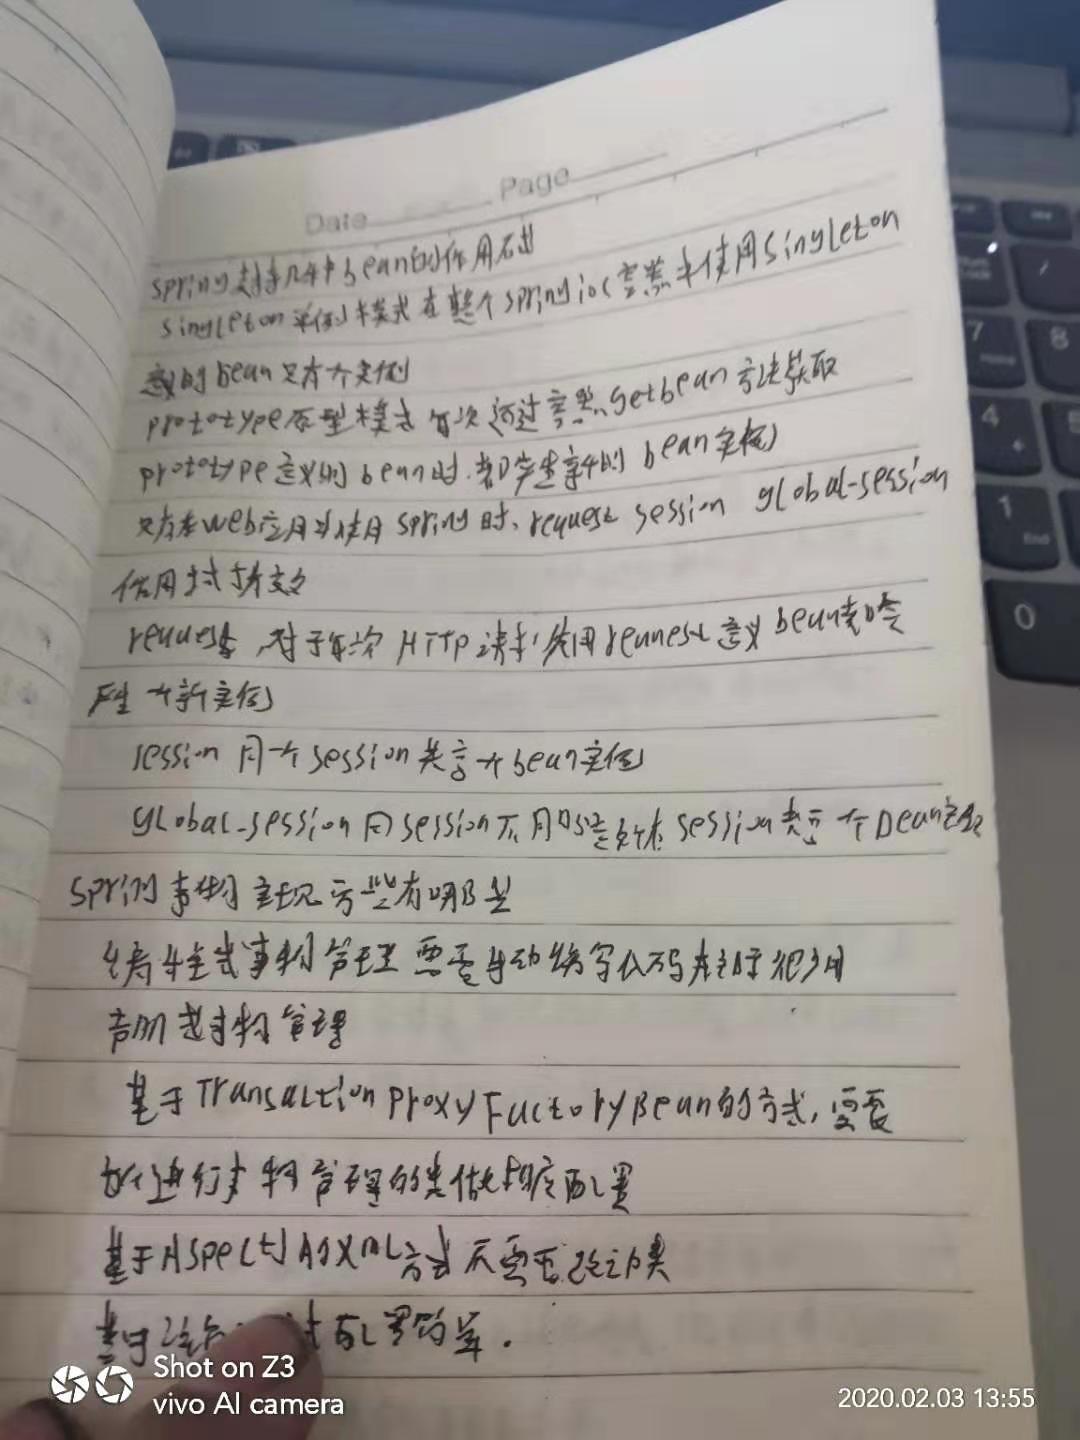 Date Page
spring支持几种bean的作用域
singleton 单例模式 在整个springioc容器中使用singleton
定义的bean只有一个实例
prototype原型模式 每次通过容器getbean方法获取
prototype定义的bean时.都产生新的bean实例
只有在web应用中使用spring时, request session global-session
作用域才有效
request,对于每次HTTP请求,使用request定义bean都会
产生一个新实例
session 同一个session共享一个bean实例
global-session 同session不同的是所有session共享一个bean实例
spring事物实现方式有哪些
编程式事物管理 需要手动编写代码 在实际很少用
声明式事物管理
基于Transaction proxy Factory Bean的方式,需要
进行事物管理的类做相应配置
基于AspectJ的XML方式 不需要改动类
基于注 配置简单.
7 Home 8
4 5
1 End
0
Shot on Z3
vivo AI camera
2020.02.03 13:55